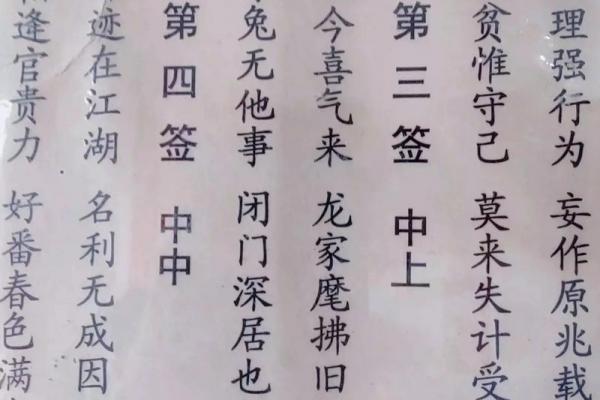 理强行为 妄作原兆载
贫惟守己 莫来失计受
第三签 中上
今喜气来 龙家麾拂旧
兔无他事 闭门深居也
第四签 中中
迹在江湖 名利无成因
逢官贵力 好番春色满